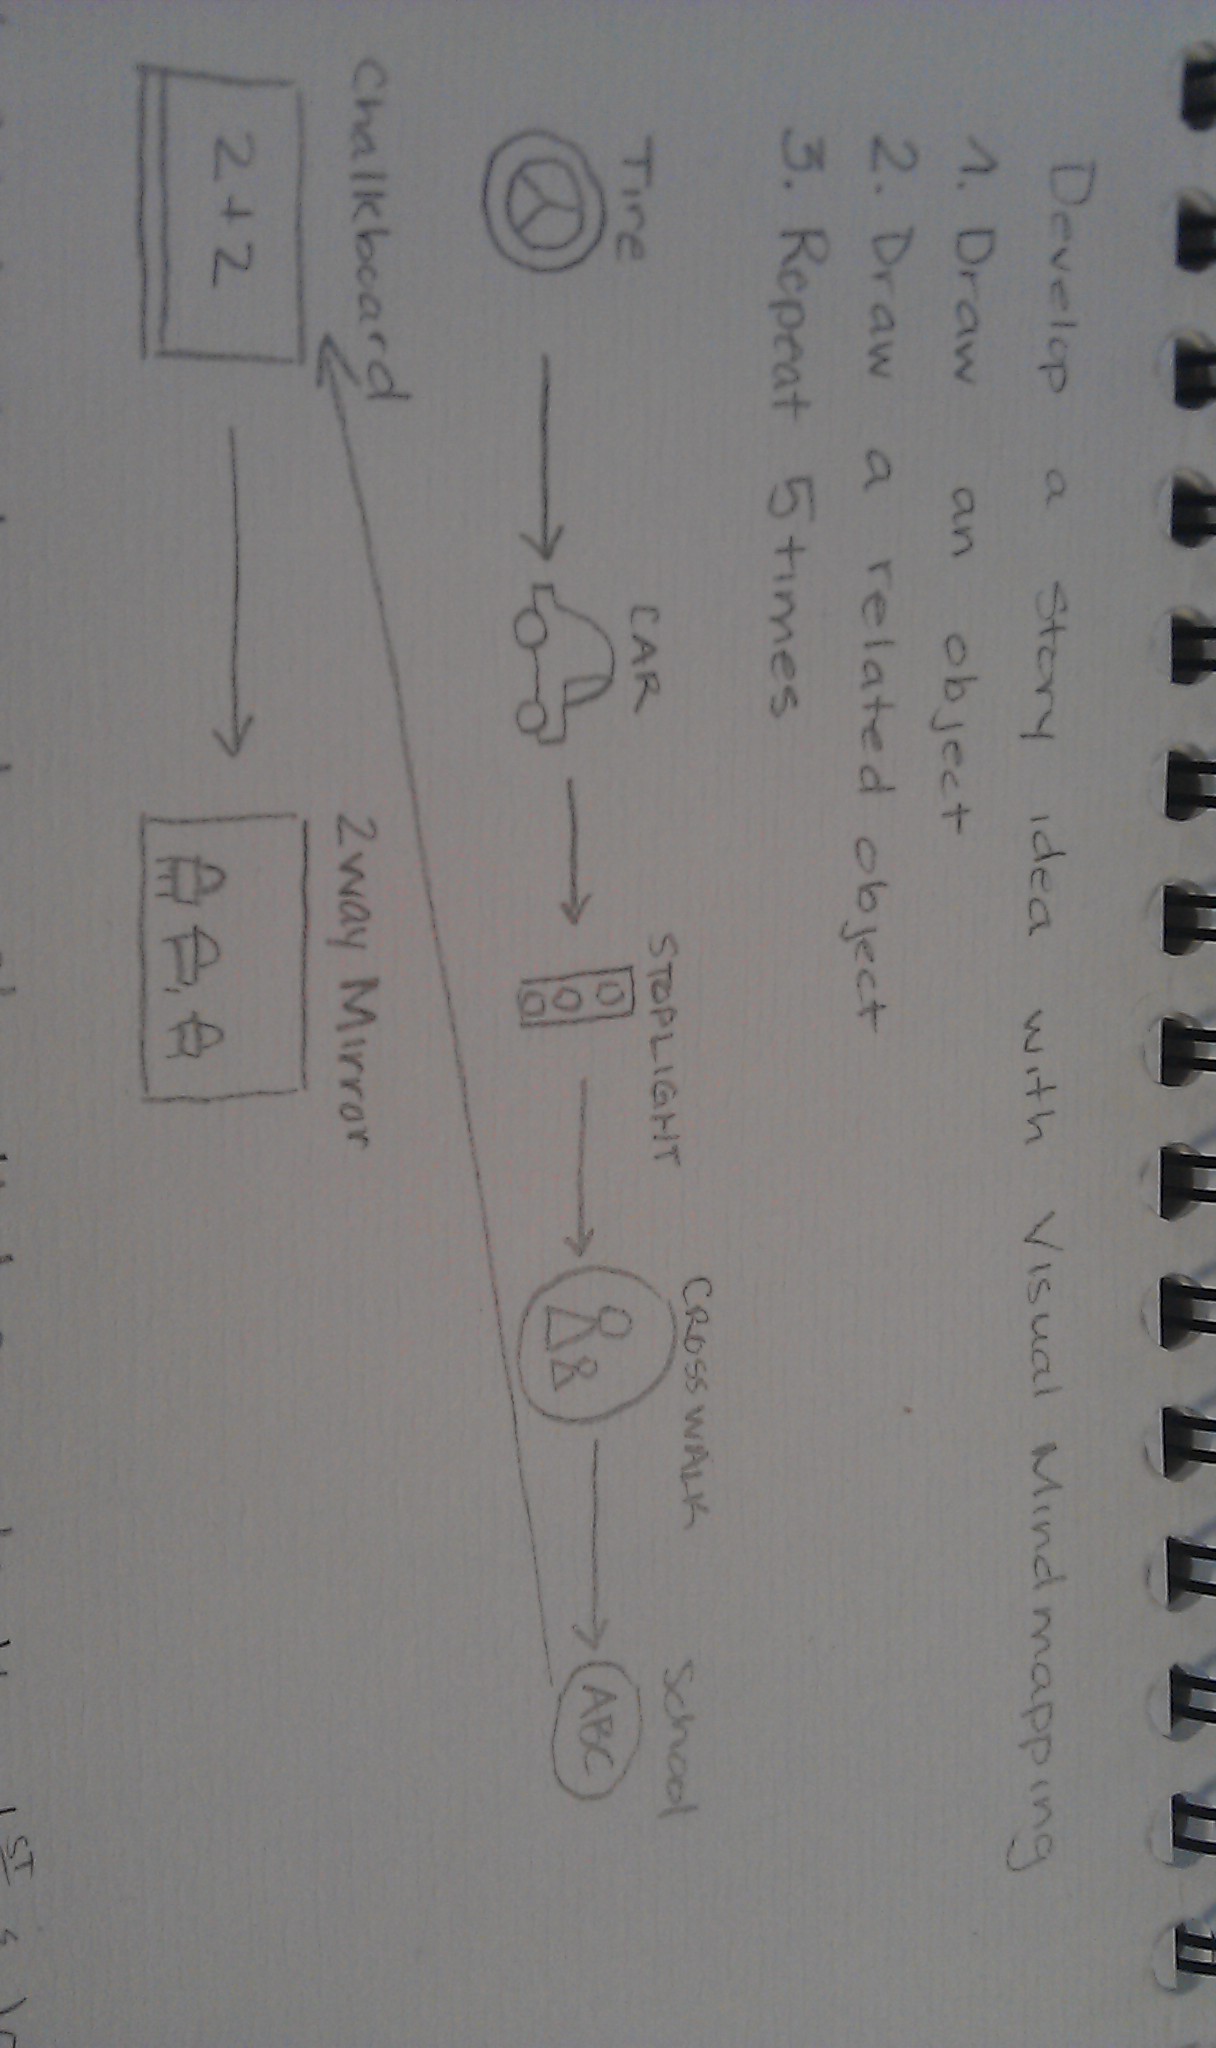 Develop a story idea with Visual Mindmapping
1. Draw an object
2. Draw a related object
3. Repeat 5 times
Tire CAR STOPLIGHT CROSSWALK School
ABC
Chalkboard 2way Mirror
2+2
1ST